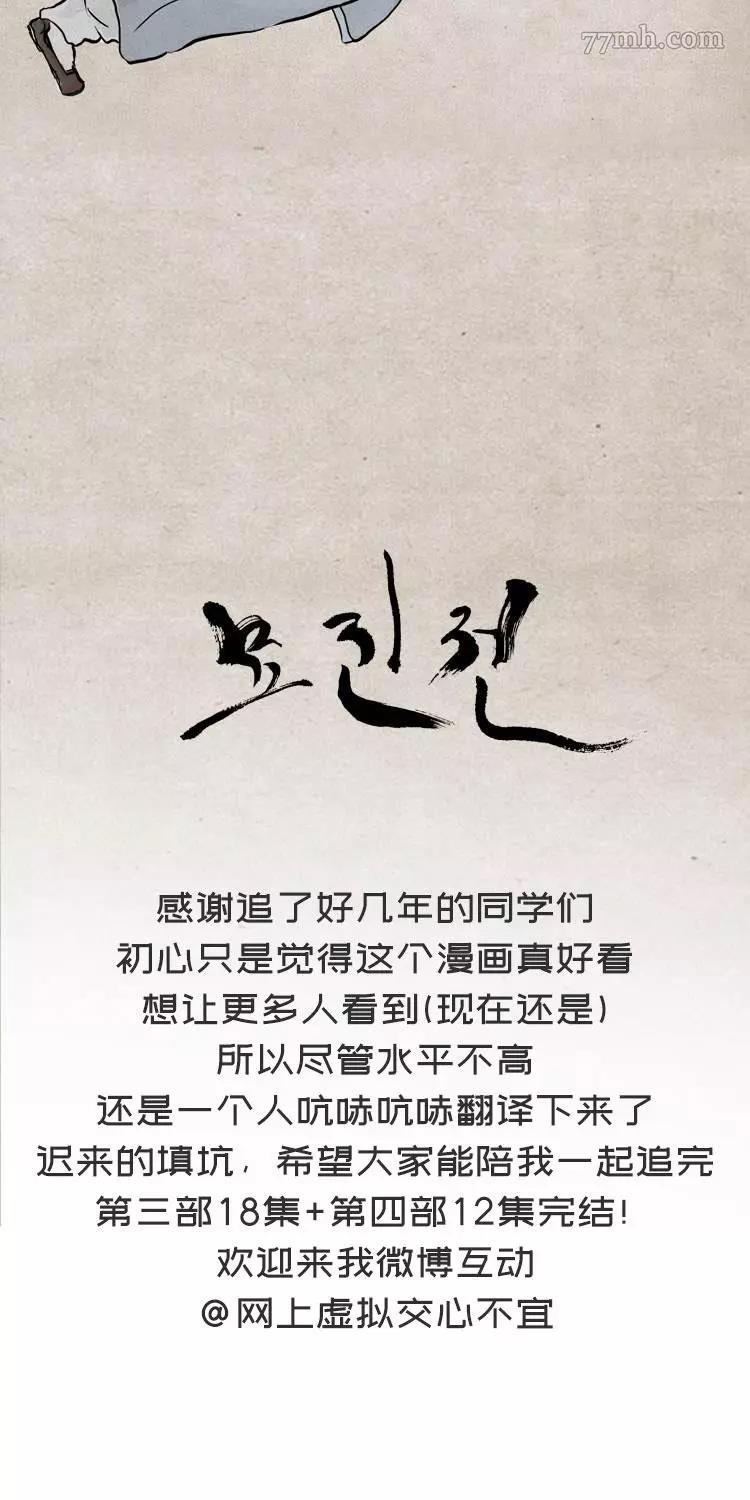 77mh.com
묘진전
感谢追了好几年的同学们
初心只是觉得这个漫画真好看
想让更多人看到(现在还是)
所以尽管水平不高
还是一个人吭哧吭哧翻译下来了
迟来的填坑，希望大家能陪我一起追完
第三部18集+第四部12集完结！
欢迎来我微博互动
@网上虚拟交心不宜